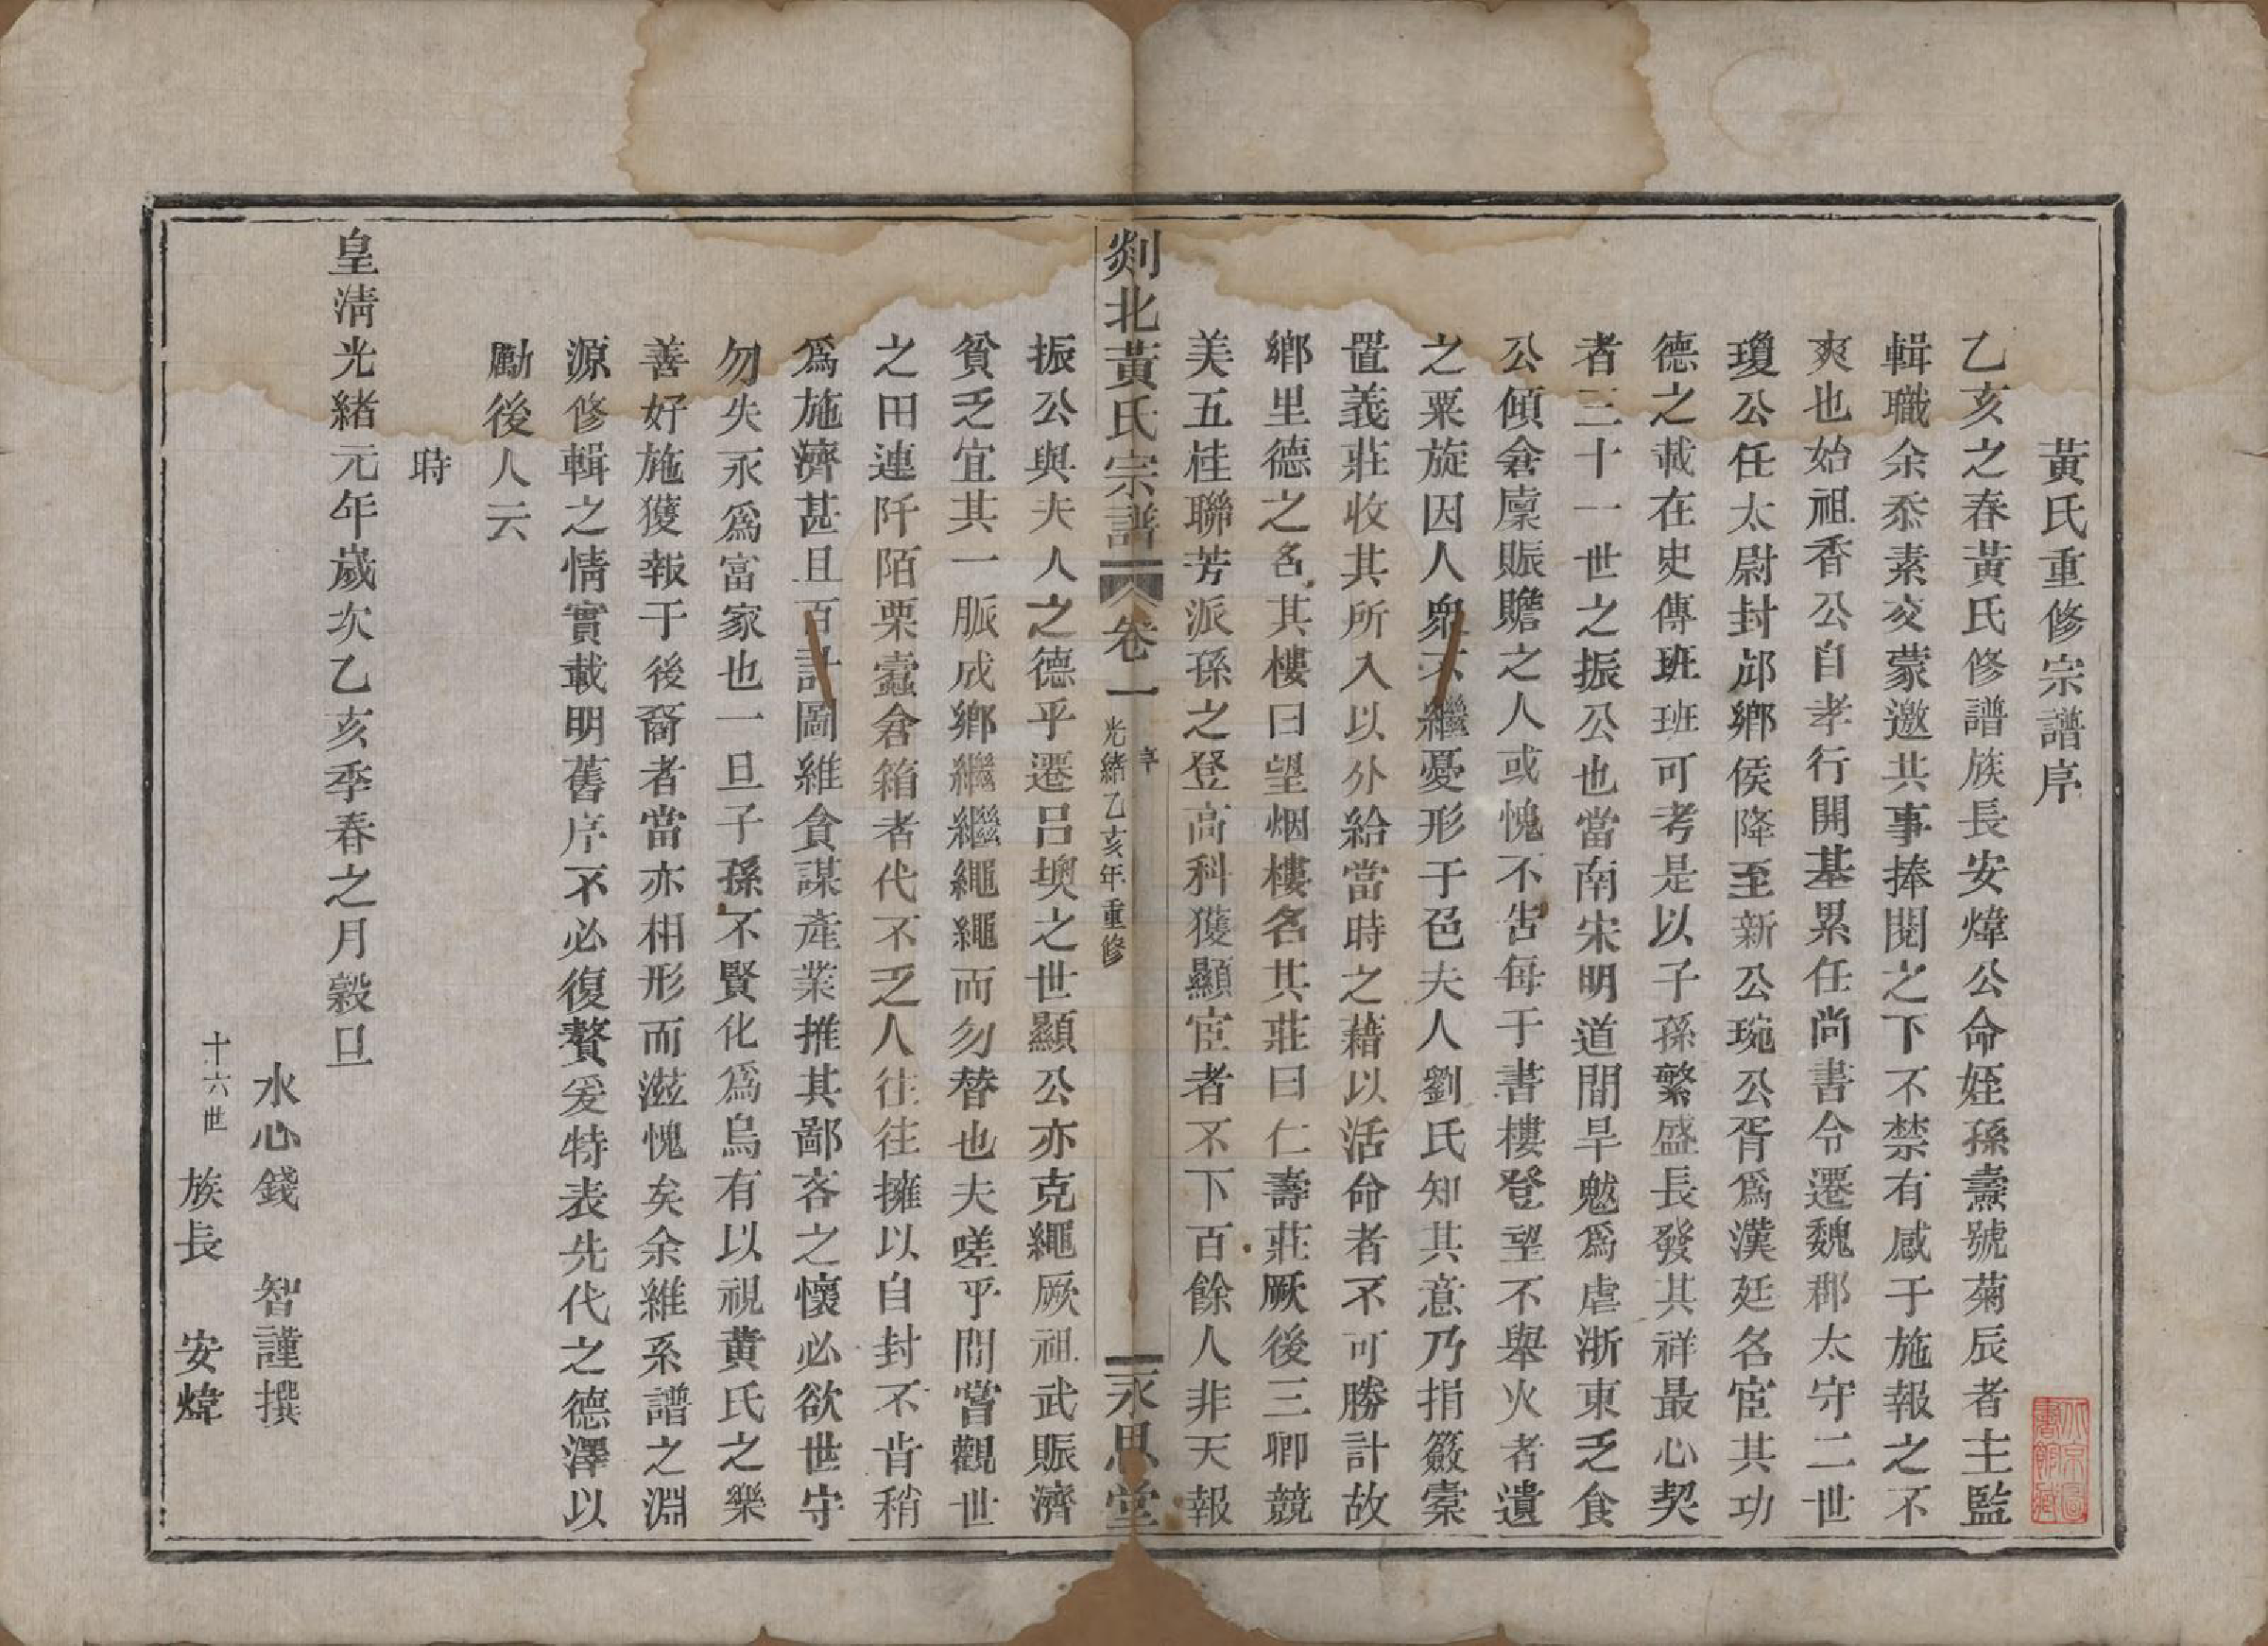 黃氏重修宗譜序
乙亥之春黃氏修譜族長安煒公命姪孫燾號菊辰者主監
輯職余忝素交蒙邀共事捧閱之下不禁有感于施報之不
爽也始祖香公自孝行開基累任尚書令遷魏郡太守二世
瓊公任太尉封邟鄉侯降至新公琬公胥爲漢廷名宦其功
德之載在史傳班班可考是以子孫繁盛長發其祥最心契
者三十一世之振公也當南宋明道間旱魃爲虐浙東乏食
公傾倉廩賑贍之人或愧不吿每于書樓登望不舉火者遺
之粟旋因人衆不繼憂形于色夫人劉氏知其意乃捐簽橐
置義莊收其所入以外給當時之藉以活命者不可勝計故
鄉里德之名其樓曰望烟樓名其莊曰仁壽莊厥後三卿競
美五桂聯芳派孫之登高科獲顯宦者不下百餘人非天報
剡北黃氏宗譜 卷一 序 光緒乙亥年重修 永思堂
振公與夫人之德乎遷呂墺之世顯公亦克繩厥祖武賑濟
貧乏宜其一脈成鄉繼繼繼繩繩而勿替也夫嗟乎間嘗觀世
之田連阡陌栗蠹倉箱者代不乏人往往擁以自封不肯稍
爲施濟甚且百計圖維貪謀產業推其鄙吝之懷必欲世守
勿失永爲富家也一旦子孫不賢化爲烏有以視黃氏之樂
善好施獲報于後裔者當亦相形而滋愧矣余維系譜之淵
源修輯之情實載明舊序不必復贅爰特表先代之德澤以
勵後人云
時
皇淸光緒元年歲次乙亥季春之月榖旦
水心錢 智謹撰
十六世 族長 安煒